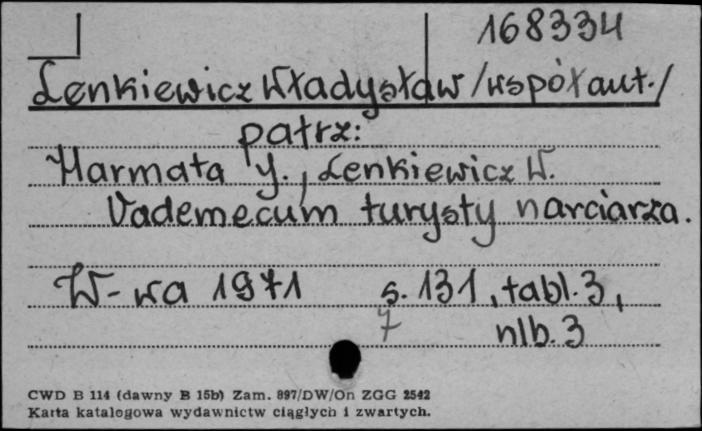 168334
Lenkiewicz Władysław /współaut./
patrz:
Harmata J., Lenkiewicz W.
Vademecum turysty narciarza.
W-wa 1971 s. 131, tabl. 3,
7 nlb. 3
CWD B 114 (dawny B 15b) Zam. 897/DW/On ZGG 2542
Karta katalogowa wydawnictw ciągłych i zwartych.